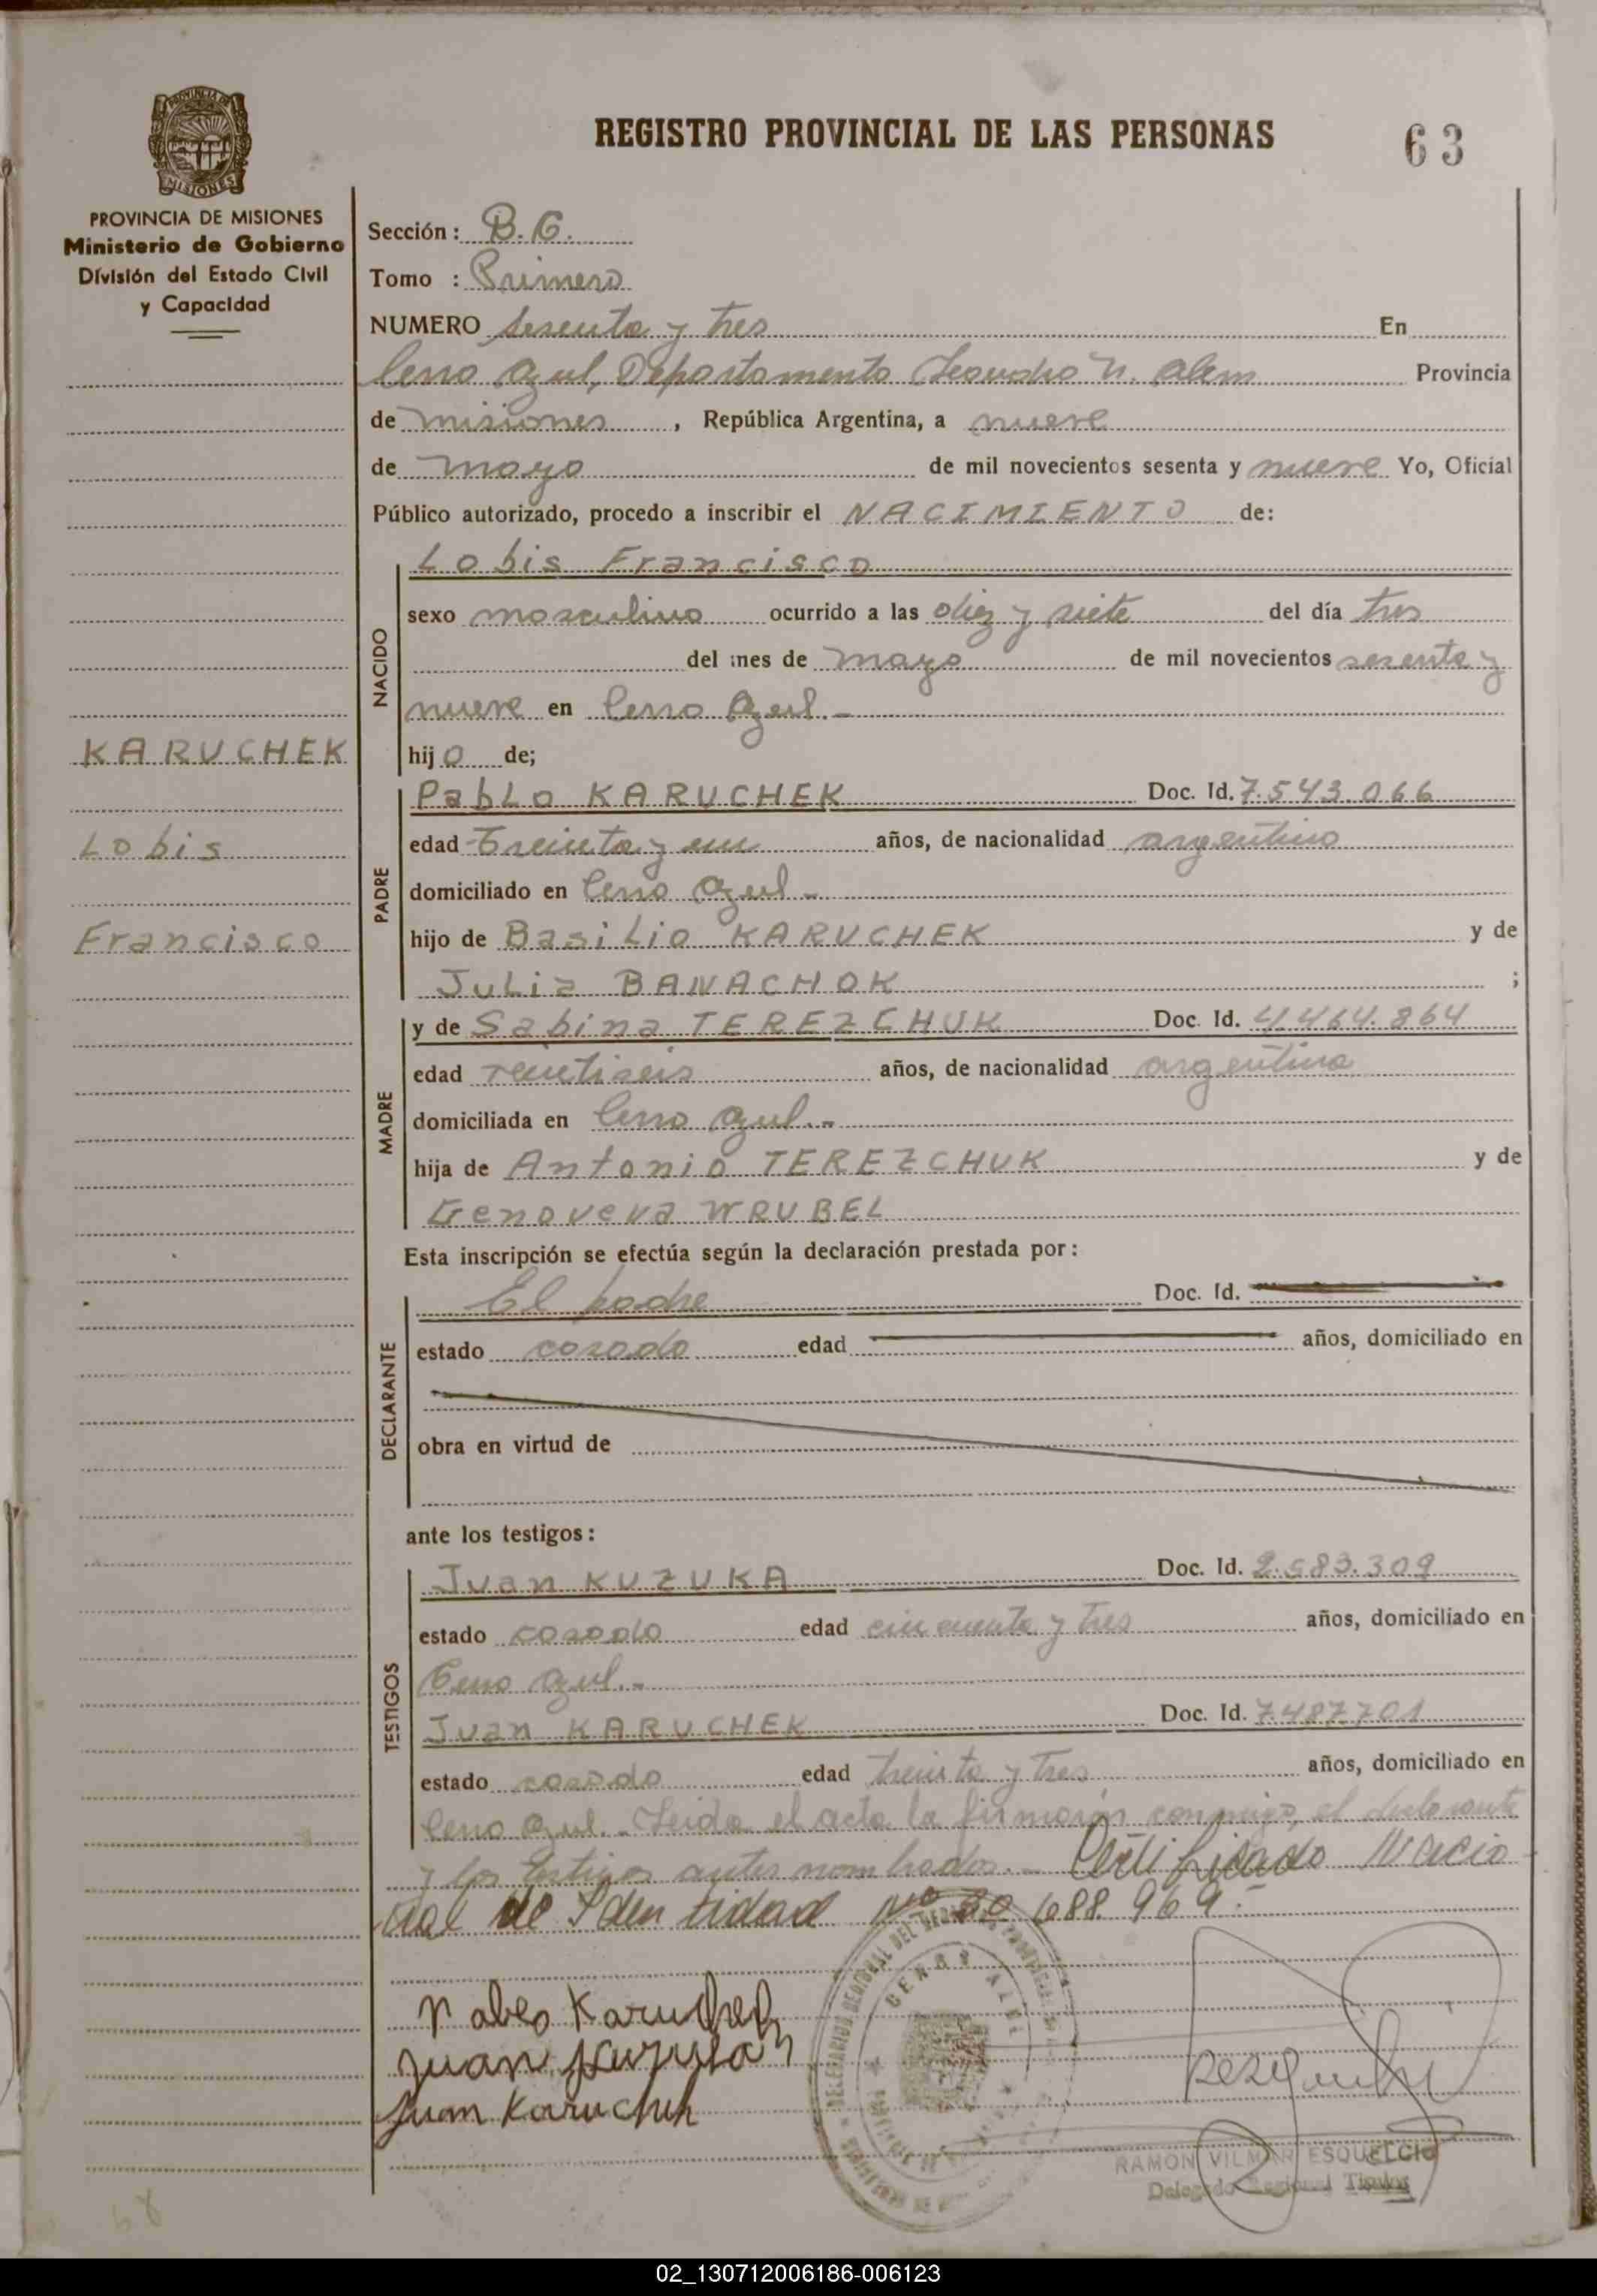 REGISTRO PROVINCIAL DE LAS PERSONAS
63
PROVINCIA DE MISIONES
MISIONES
PROVINCIA DE MISIONES
Ministerio de Gobierno
División del Estado Civil
y Capacidad
KARUCHEK
Lobis
Francisco
Sección: B.G.
Tomo : Primero
NUMERO sesenta y tres En
Cerro Azul, Departamento Leandro N. Alem Provincia
de Misiones, República Argentina, a nueve
de mayo de mil novecientos sesenta y nueve Yo, Oficial
Público autorizado, procedo a inscribir el NACIMIENTO de:
NACIDO
Lobis Francisco
sexo masculino ocurrido a las diez y siete del día tres
del mes de mayo de mil novecientos sesenta y
nueve en Cerro Azul.-
hijo de;
PADRE
Pablo KARUCHEK Doc. Id. 7.543.066
edad treinta y un años, de nacionalidad argentino
domiciliado en Cerro Azul.-
hijo de Basilio KARUCHEK y de
Julia BANACHOK ;
MADRE
y de Sabina TEREZCHUK Doc. Id. 4.464.864
edad veintiseis años, de nacionalidad argentina
domiciliada en Cerro Azul.-
hija de Antonio TEREZCHUK y de
Genoveva WRUBEL
Esta inscripción se efectúa según la declaración prestada por:
DECLARANTE
El padre Doc. Id.
estado casado edad años, domiciliado en
obra en virtud de
ante los testigos:
TESTIGOS
Juan KUZUKA Doc. Id. 2.583.309
estado casado edad cincuenta y tres años, domiciliado en
Cerro Azul.-
Juan KARUCHEK Doc. Id. 7.487.701
estado casado edad treinta y tres años, domiciliado en
Cerro Azul.- Leida el acta la firmarán conmigo, el declarante
y los testigos antes nombrados.- Certificado Nacio-
nal de Identidad Nº 20.688.969.-
Pablo Karuchek
Juan Kuzuka
Juan Karuchek
CERRO AZUL
RAMON VILMAR ESQUELCIO
Delegado Regional Titular
02_130712006186-006123